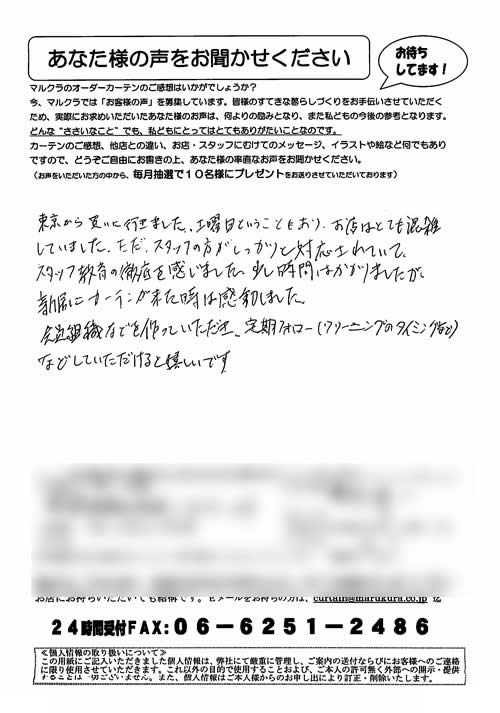 あなた様の声をお聞かせください
お待ち
してます！
マルクラのオーダーカーテンのご感想はいかがでしょうか？
今、マルクラでは「お客様の声」を募集しています。皆様のすてきな暮らしづくりをお手伝いさせていただく
ため、実際にお求めいただいたあなた様のお声は、何よりの励みとなり、また私どもの今後の参考となります。
どんな“ささいなこと”でも、私どもにとってはとてもありがたいことなのです。
カーテンのご感想、他店との違い、お店・スタッフにむけてのメッセージ、イラストや絵など何でもあり
ですので、どうぞご自由にお書きの上、あなた様の率直なお声をお聞かせください。
（お声をいただいた方の中から、毎月抽選で１０名様にプレゼントをお送りさせていただいております）
東京から買いに行きました。土曜日ということもあり、お店はとても混雑
していました。ただ、スタッフの方がしっかりと対応されていて、
スタッフ教育の徹底を感じました。少し時間はかかりましたが、
新居にカーテンが来た時は感動しました。
会員組織などを作っていただき、定期フォロー（クリーニングのタイミングなど）
などしていただけると嬉しいです
お店にお持ちいただいても結構です。Ｅメールをお待ちの方は、curtain@marukura.co.jp 迄
２４時間受付FAX:０６－６２５１－２４８６
≪個人情報の取り扱いについて≫
この用紙にご記入いただきました個人情報は、弊社にて厳重に管理し、ご案内の送付ならびにお客様へのご連絡
に限り使用させていただきます。これ以外の目的で使用することおよび、ご本人の許可無く外部への開示・提供
することは一切ございません。また、個人情報はご本人様からのお申し出により訂正・削除いたします。